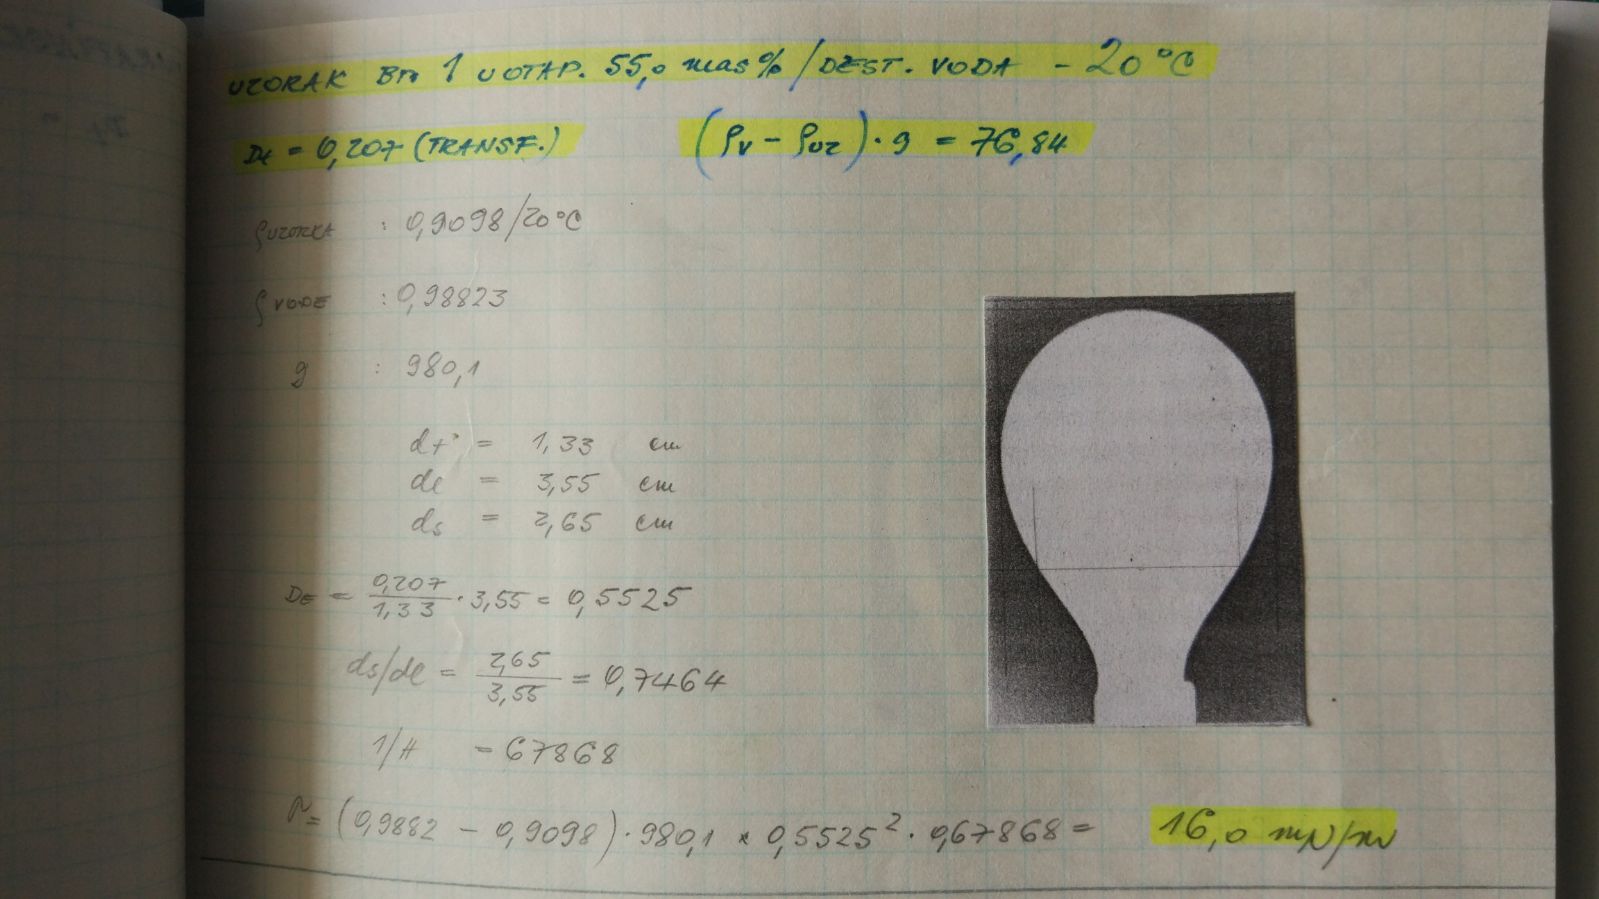 UZORAK BR. 1 U OTAP. 55,0 mas% / DEST. VODA - 20°C
Dt = 0,207 (TRANSF.) (ρv - ρuz) · g = 76,84
ρUZORKA : 0,9098/20°C
ρVODE : 0,98823
g : 980,1
dt = 1,33 cm
de = 3,55 cm
ds = 2,65 cm
DE = 0,207/1,33 · 3,55 = 0,5525
ds/de = 2,65/3,55 = 0,7464
1/H = 67868
= (0,9882 - 0,9098) · 980,1 × 0,5525² · 0,67868 = 16,0 mN/m